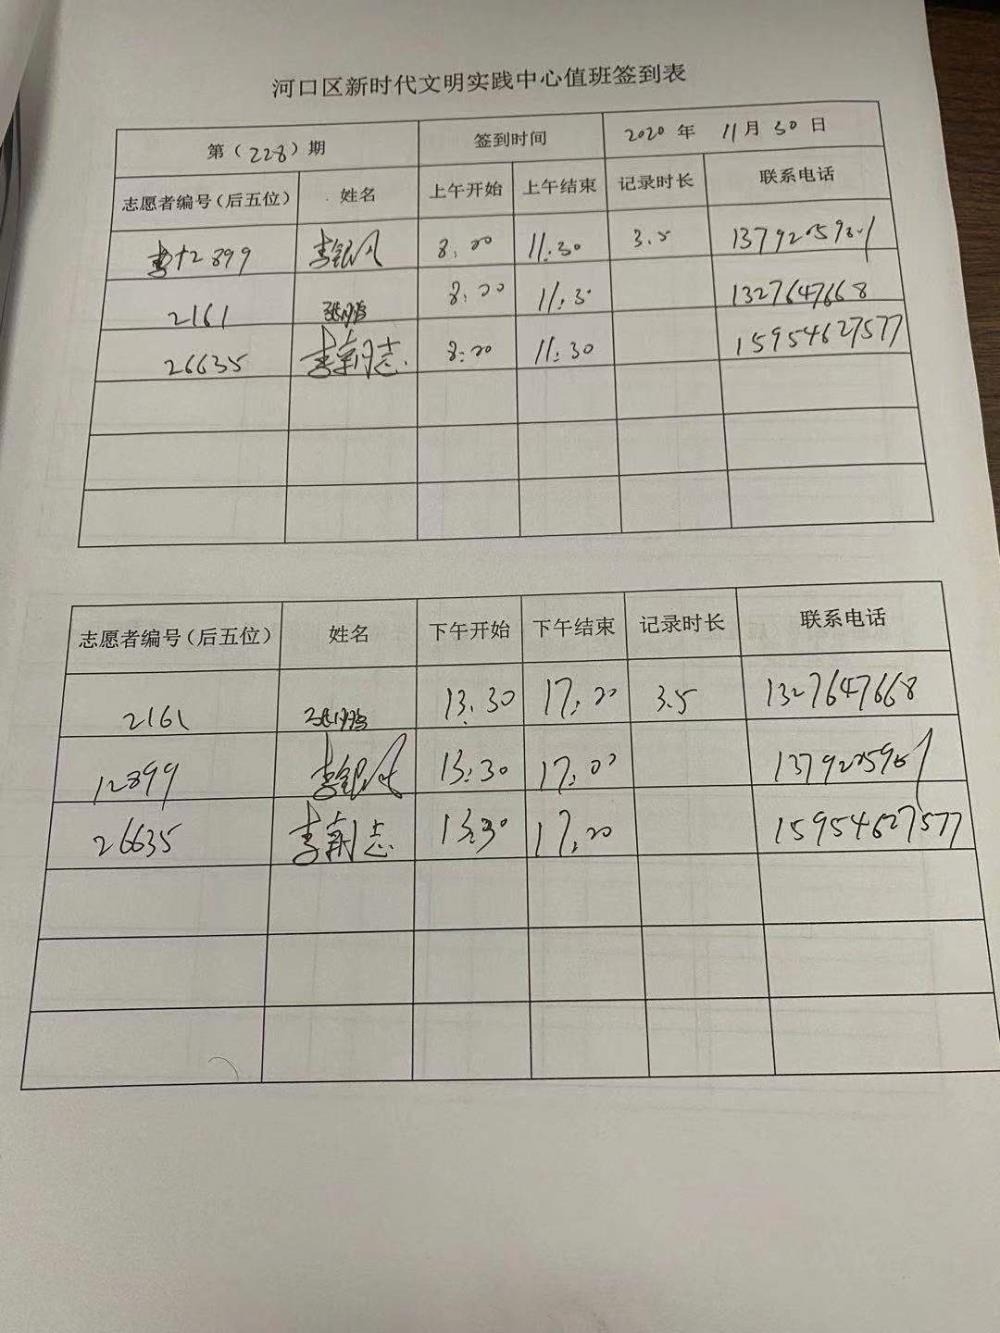 河口区新时代文明实践中心值班签到表
第（228）期 签到时间 2020年 11月30日
志愿者编号（后五位） 姓名 上午开始 上午结束 记录时长 联系电话
12899 李银 8:00 11:30 3.5
2161 8:00 11:30 1327647668
26635 李新志 8:00 11:30 15954627577
志愿者编号（后五位） 姓名 下午开始 下午结束 记录时长 联系电话
2161 13:30 17:00 3.5 1327647668
12899 李银 13:30 17:00
26635 李新志 13:30 17:00 15954627577